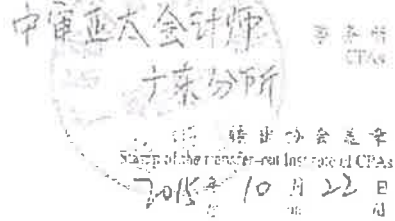 中审亚太会计师 事务所
CPAs
广东分所
转出协会盖章
Stamp of the transfer-out Institute of CPAs
2015年 10月 22日